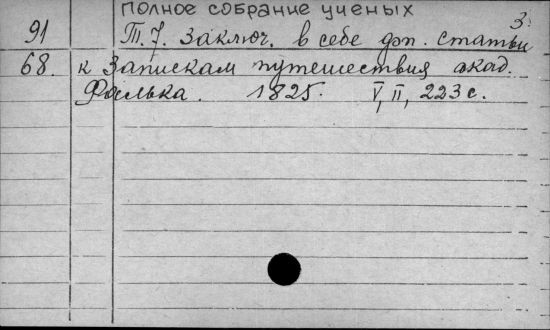 Полное собрание ученых
3.
91 Т. 7. Заключ. в себе доп. статьи
68. к Запискам путешествия акад.
Фалька. 1825. V, II, 223 с.